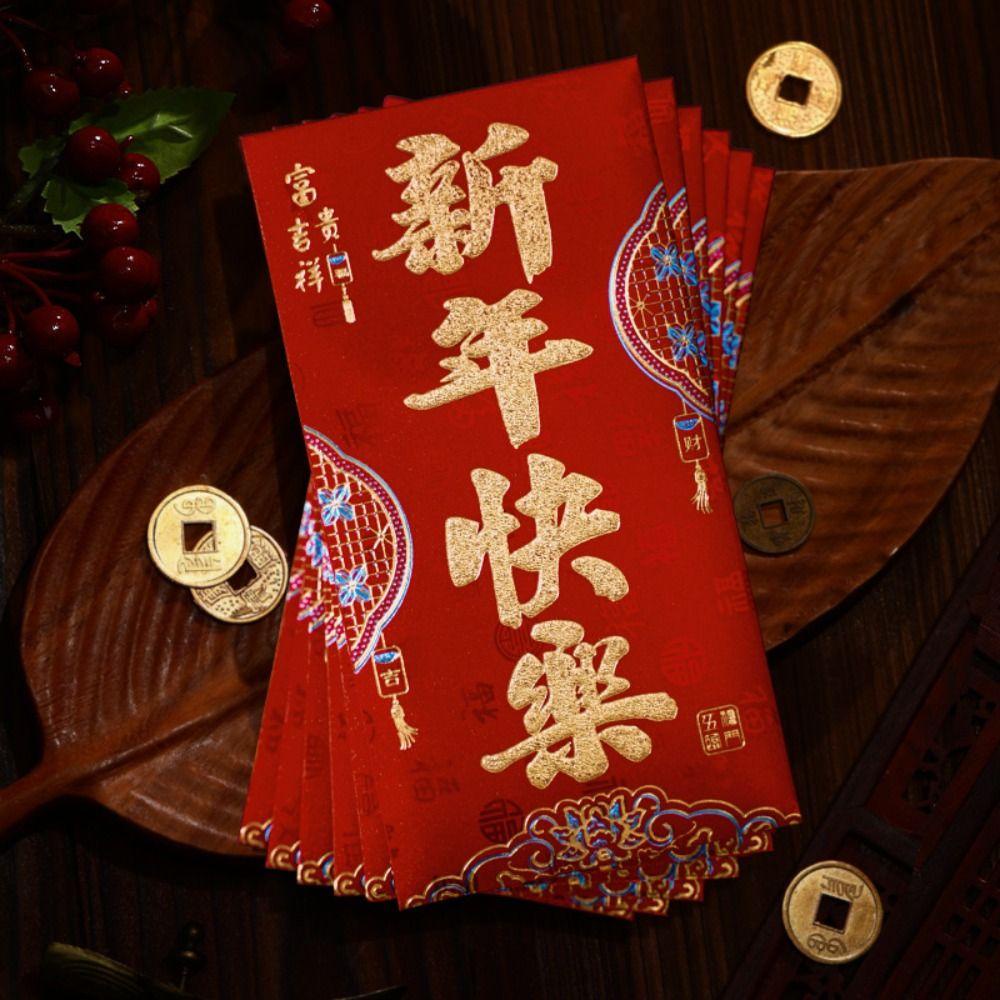 新年快樂
富貴
吉祥
财
吉
福
五福
臨門